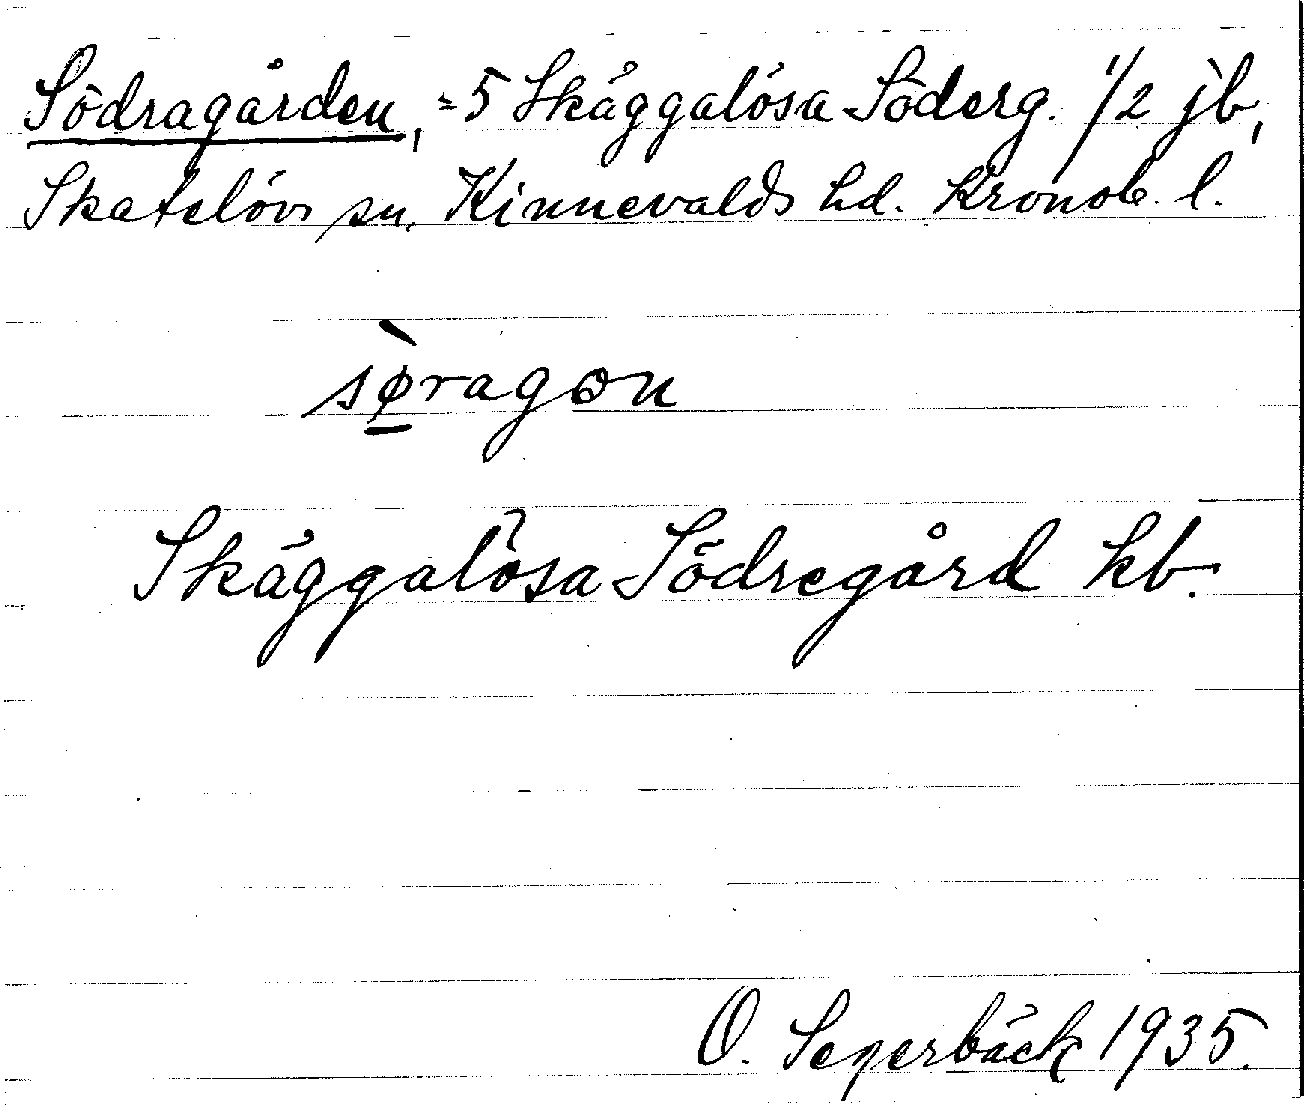 Södragården, = 5 Skäggalösa Söderg. 1/2 jb,
Skatelövs sn, Kinnevalds hd. Kronob. l.
sø̱̀ragən
Skäggalösa Södregård kb.
O. Segerbäck 1935.